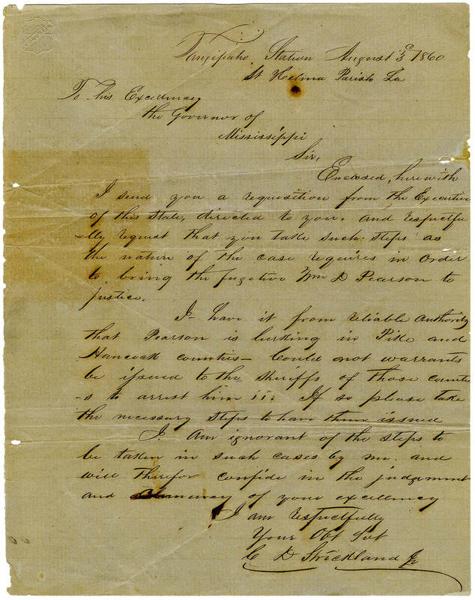 Tangipaho, Station August 3d 1860
St Helena Parish La
To his Excellency
the Governor of
Mississippi
Sir,
Enclosed, herewith
I send you a requisition from the Executive
of this State, directed to you. and respectfu-
-lly request that you take such steps as
the nature of the case requires in order
to bring the fugitive Wm D Pearson to
justice.
I have it from reliable authority
that Pearson is lurking in Pike and
Hancock counties — Could not warrants
be issued to the Sheriffs of those counti-
-s to arrest him If so please take
the necessary steps to have them issued
I am ignorant of the steps to
be taken in such cases by me. and
will therefor confide in the judgment
and of your excellency
I am respectfully
Your Obt Svt
C D Strickland Jr